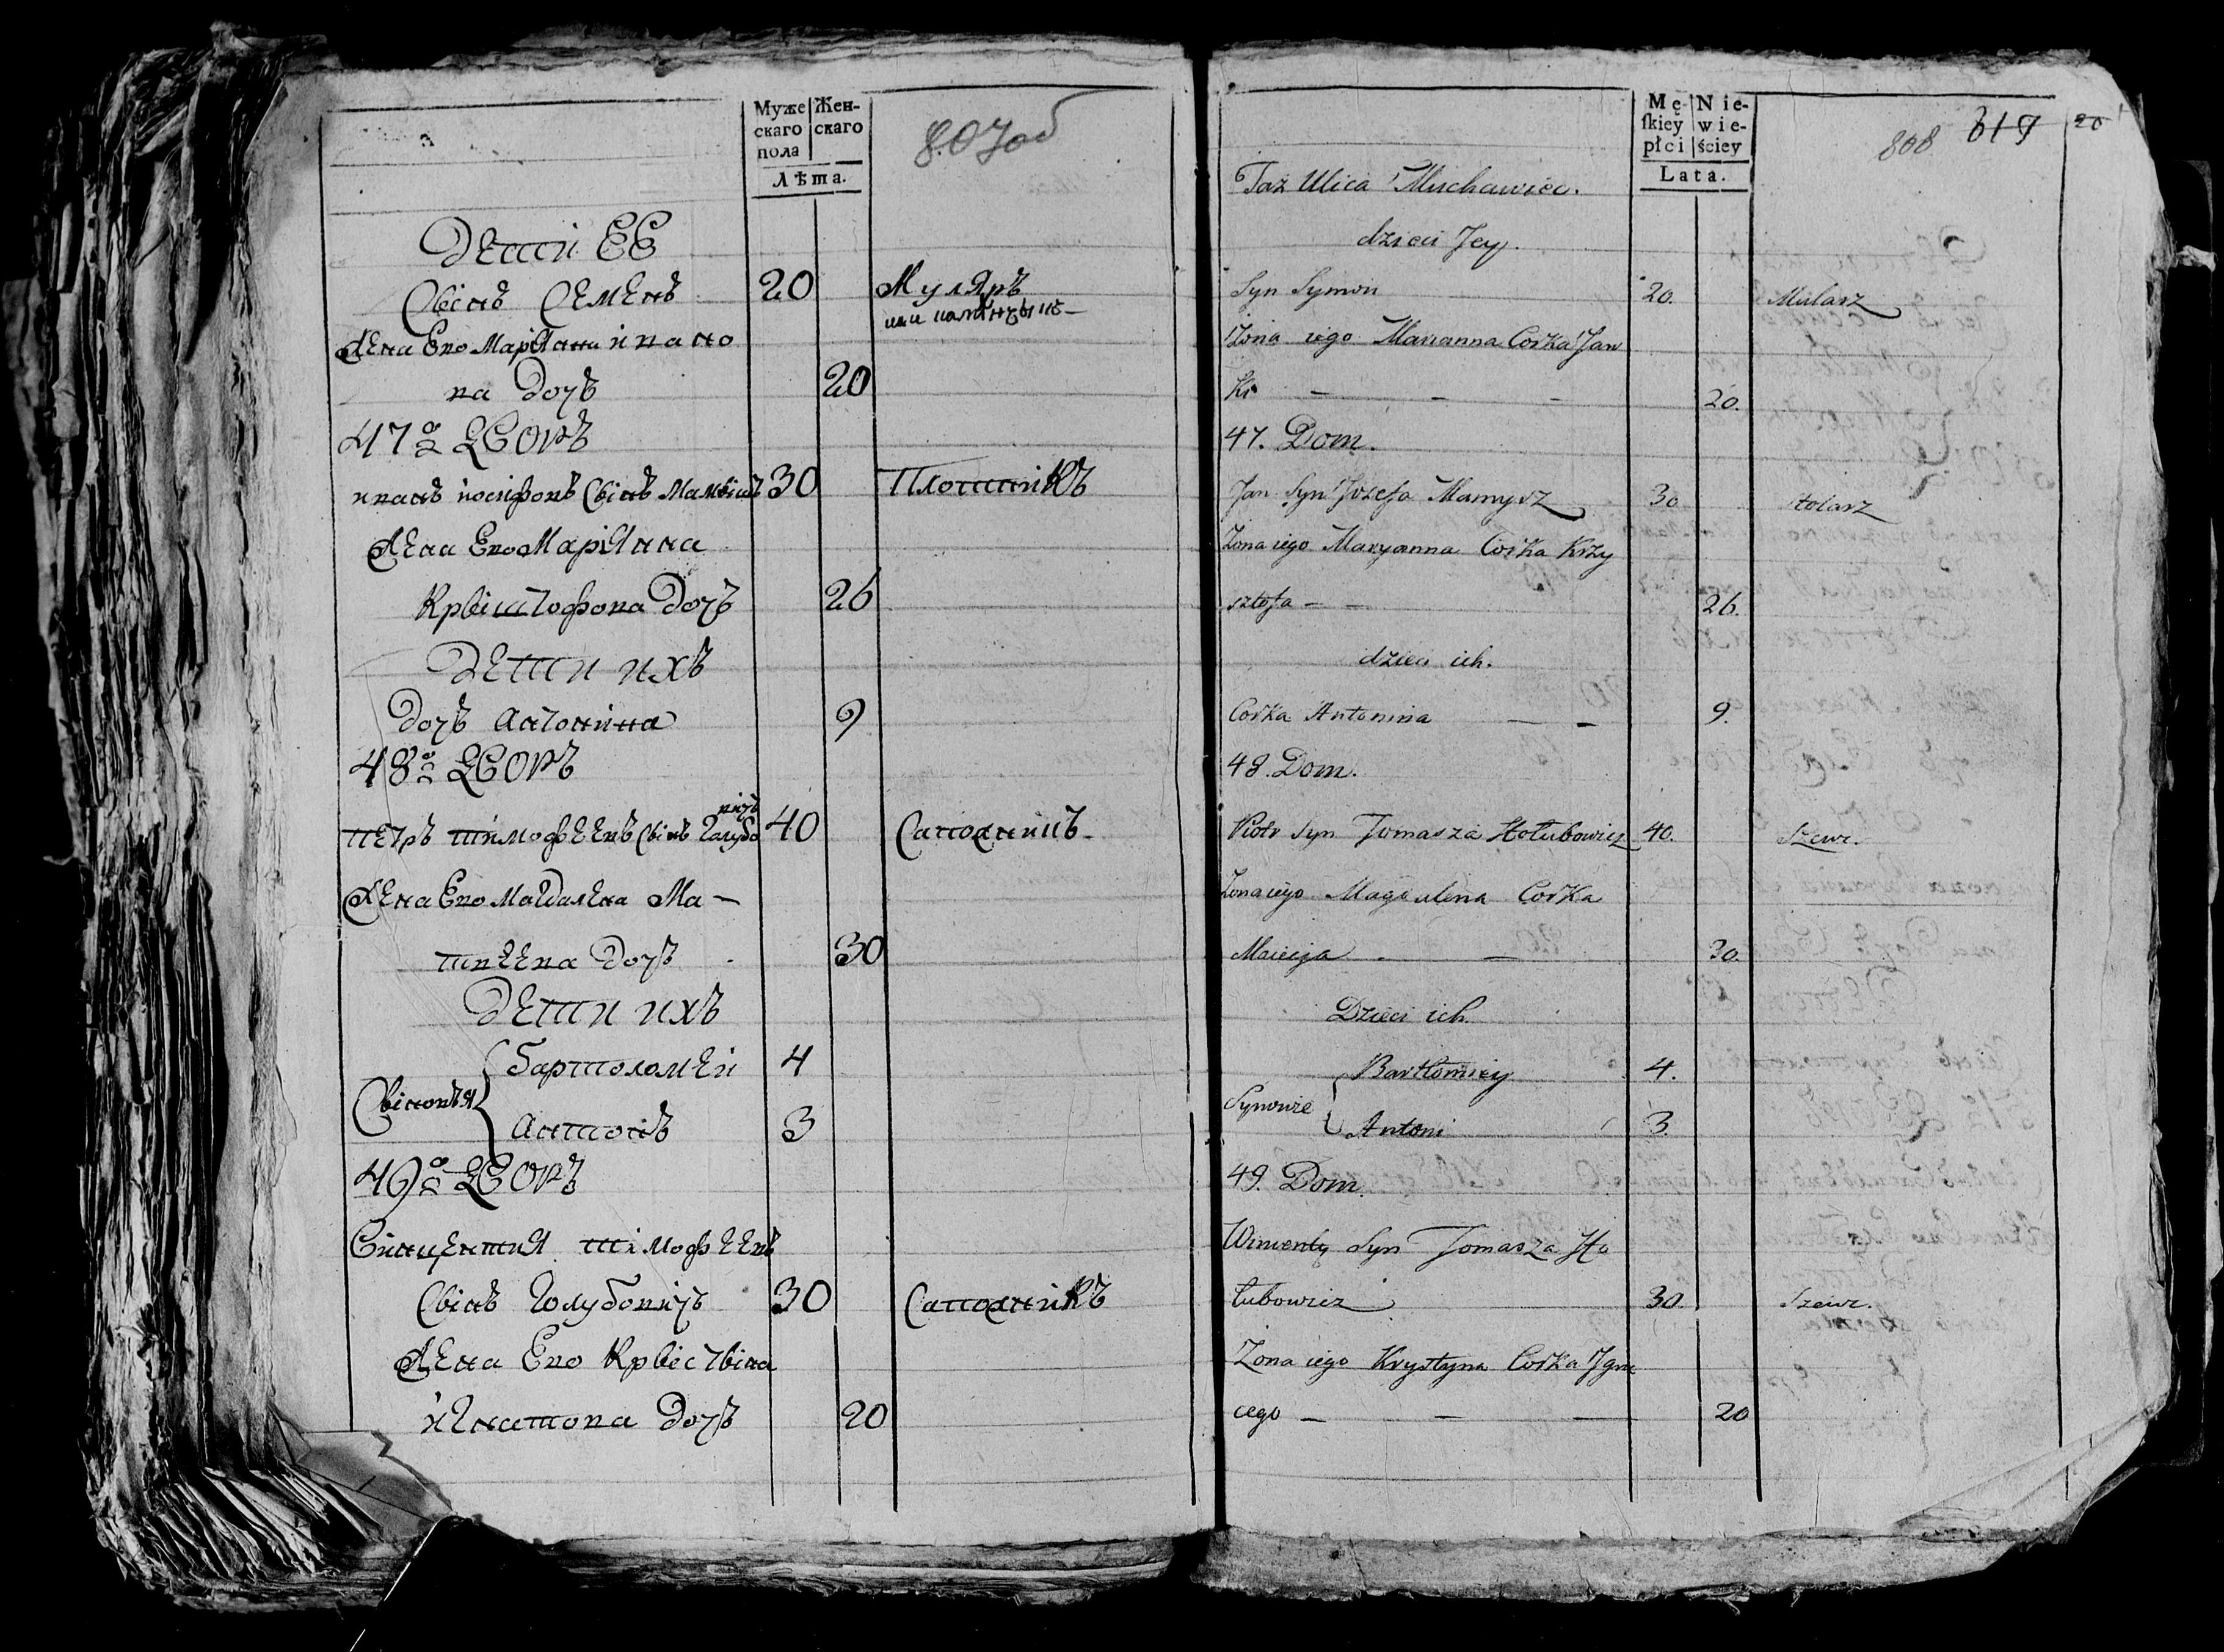 Муже
скаго
пола
Жен-
скаго
Лѣта.
807об
Дети ЕЕ
Сынъ Семенъ 20 Муляръ
или каменщикъ
Жена Его Марiянна ивано
ва дочь 20
47й Дворъ
иванъ иосифовъ Сынъ Мамышъ 30 Плотникъ
Жена Его Марiянна
Крыштофова дочь 26
Дети ихъ
дочь Антонина 9
48й Дворъ
Петръ тимофеевъ Сынъ Голубо
вичъ 40 Сапожникъ
Жена Его Магдалена Ма-
твеева дочь 30
Дети ихъ
Сыновья { Бартоломей 4
Антонъ 3
49й Дворъ
Винцентия тiмофеевъ
Сынъ Голубовичъ 30 Сапожникъ
Жена Его Крыстына
игнатова дочь 20
Mę-
ſkiey
płci
Nie-
wie-
ściey
Lata.
808 617 20
Taż Ulica Muchawiec.
dzieci Jey.
Syn Symon 20. Mularz
Żona iego Marianna Corka Jan
ki - - - 20.
47. Dom.
Jan Syn Jozefa Mamysz 30 stolarz
Żona iego Maryanna Corka Krzy
sztofa - - 26.
dzieci ich.
Corka Antonina - - 9.
48. Dom.
Piotr Syn Tomasza Hołubowicz 40. Szewc.
Żona iego Magdalena Corka
Macieja - - 30.
Dzieci ich.
Synowie { Bartłomiey 4.
Antoni 3.
49. Dom.
Wincenty Syn Tomasza Ho
łubowicz 30. Szewc.
Żona iego Krystyna Corka Igna
cego - - - 20